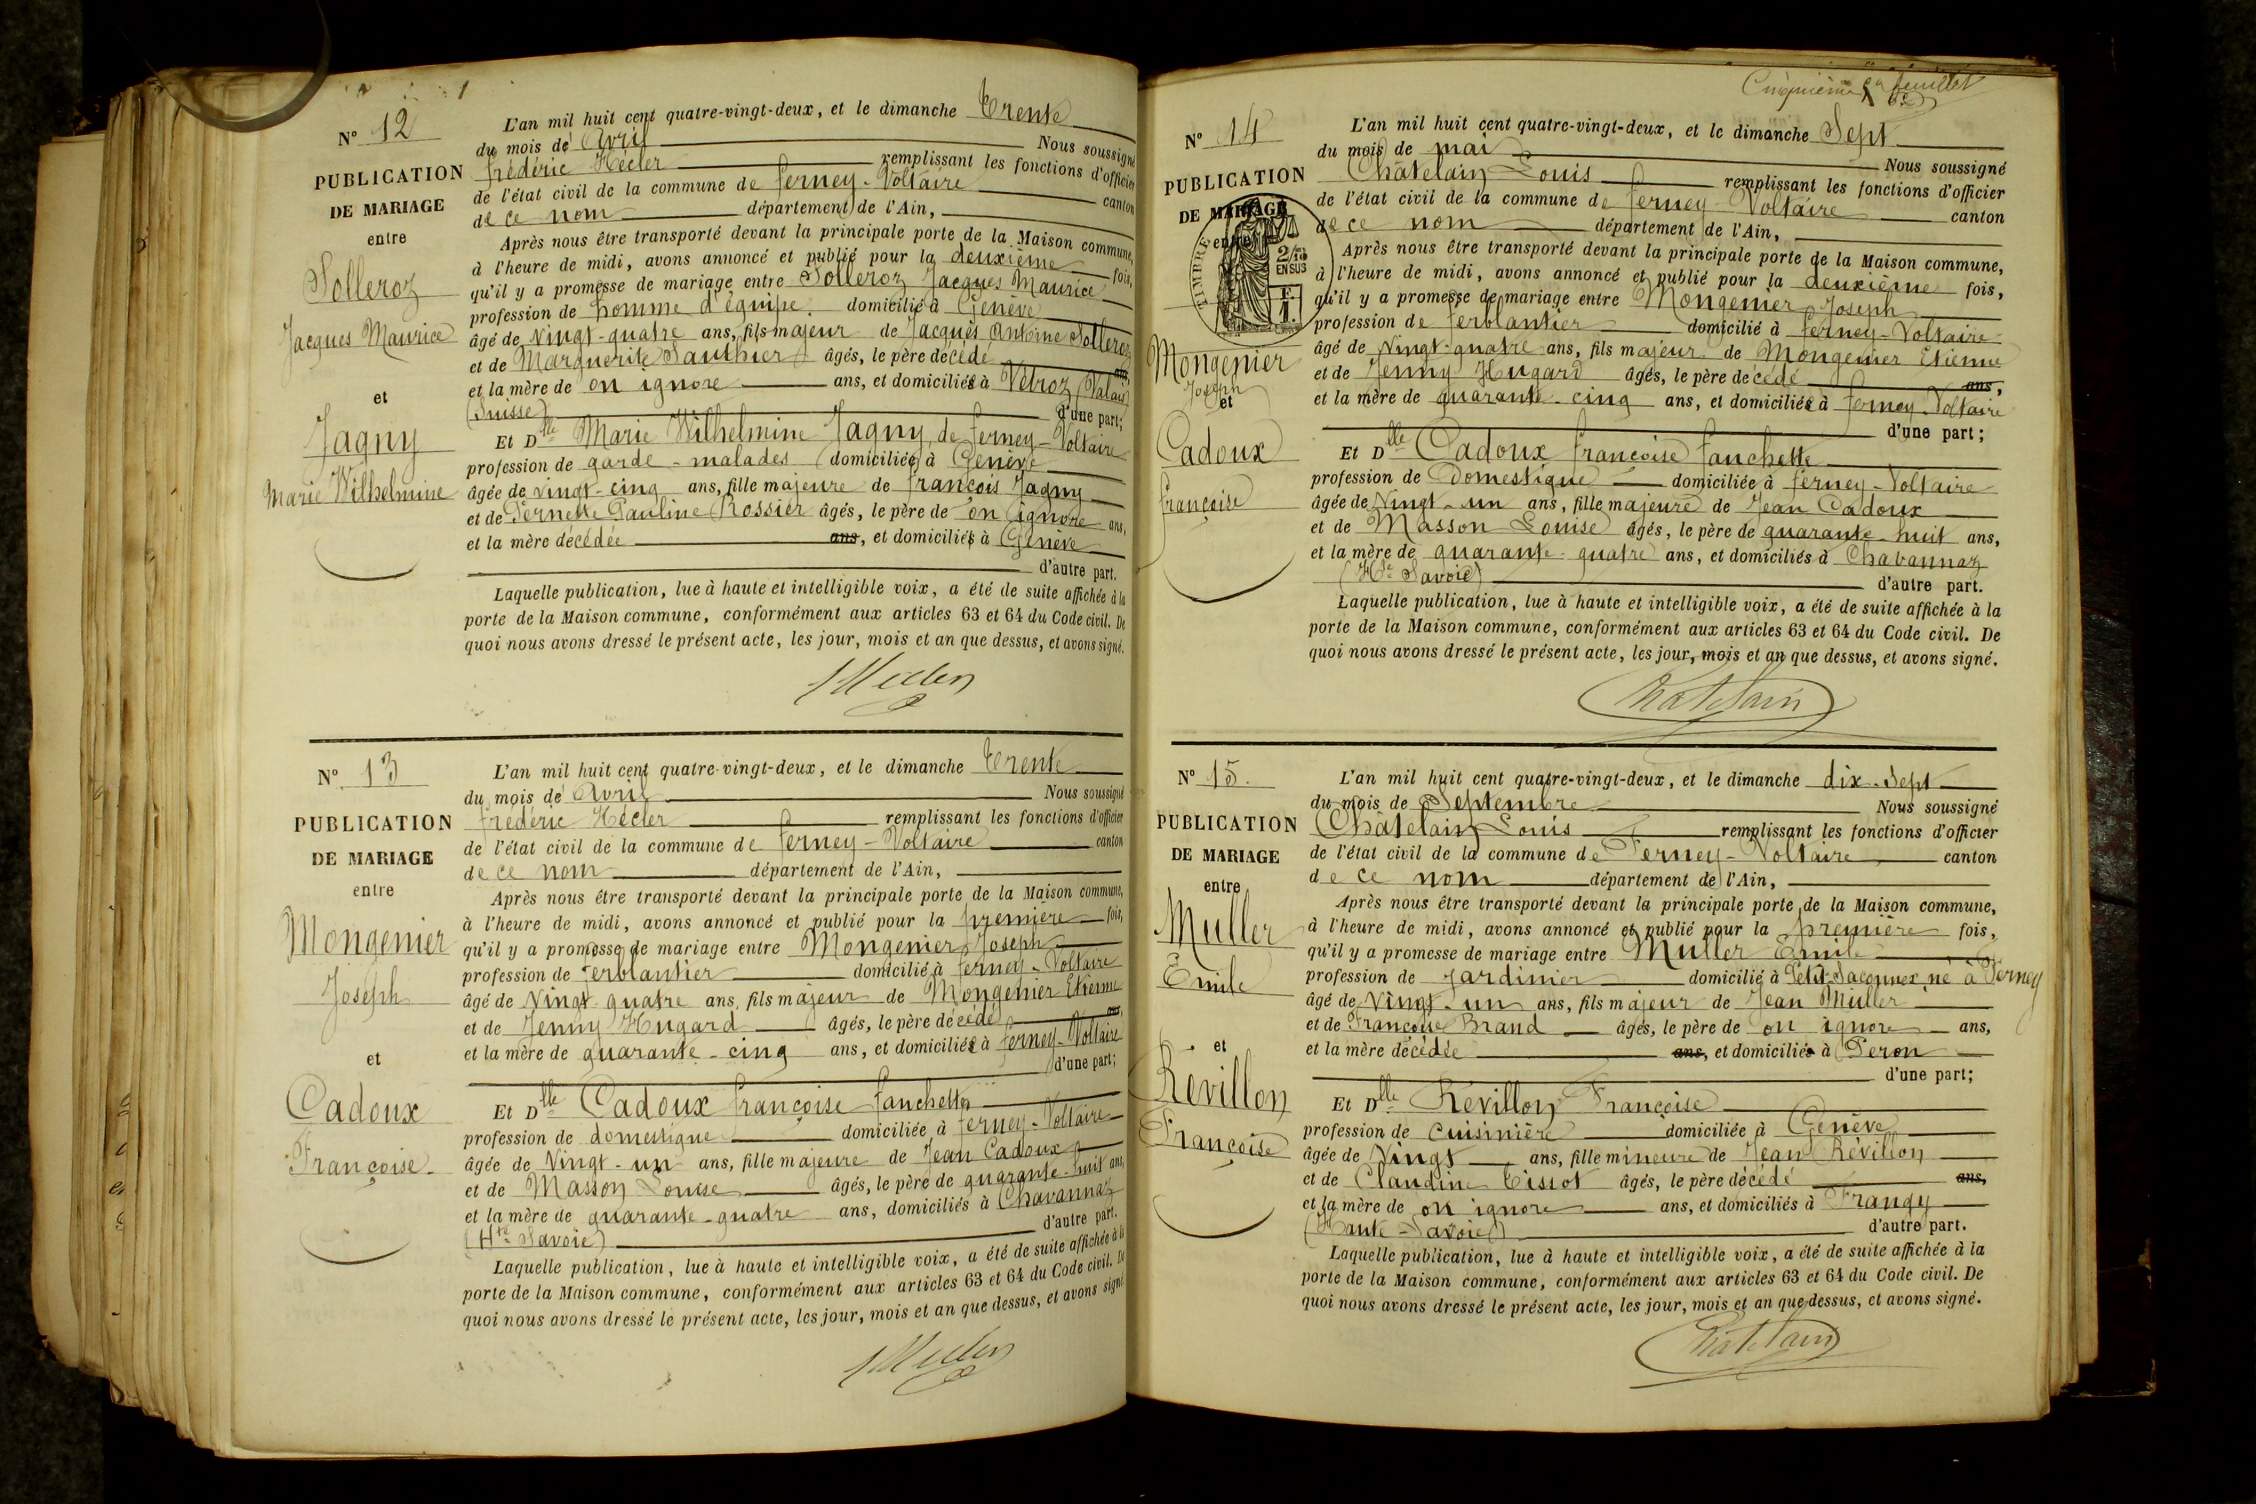 N° 12
PUBLICATION
DE MARIAGE
entre
Solleroz
Jacques Maurice
et
Jagny
Marie Wilhelmine
L'an mil huit cent quatre-vingt-deux, et le dimanche Trente
du mois de Avril Nous soussigné
frédéric Hécler remplissant les fonctions d'officier
de l'état civil de la commune de ferney-Voltaire canton
de ce nom département de l'Ain,
Après nous être transporté devant la principale porte de la Maison commune,
à l'heure de midi, avons annoncé et publié pour la deuxième fois,
qu'il y a promesse de mariage entre Solleroz Jacques Maurice
profession de homme d'équipe domicilié à Genève
âgé de Vingt-quatre ans, fils majeur de Jacques Antoine Solleroz
et de Marguerite Sauthier âgés, le père décédé ans,
et la mère de on ignore ans, et domiciliés à Vétroz (Valais)
(Suisse) d'une part;
Et Dlle Marie Wilhelmine Jagny, de ferney-Voltaire
profession de garde-malades domiciliée à Genève
âgée de vingt-cinq ans, fille majeure de françois Jagny
et de Pernette Pauline Rossier âgés, le père de on ignore ans,
et la mère décédée ans, et domiciliés à Genève
d'autre part.
Laquelle publication, lue à haute et intelligible voix, a été de suite affichée à la
porte de la Maison commune, conformément aux articles 63 et 64 du Code civil. De
quoi nous avons dressé le présent acte, les jour, mois et an que dessus, et avons signé.
N° 13
PUBLICATION
DE MARIAGE
entre
Mongenier
Joseph
et
Cadoux
Françoise
L'an mil huit cent quatre-vingt-deux, et le dimanche Trente
du mois de Avril Nous soussigné
frédéric Hécler remplissant les fonctions d'officier
de l'état civil de la commune de ferney-Voltaire canton
de ce nom département de l'Ain,
Après nous être transporté devant la principale porte de la Maison commune,
à l'heure de midi, avons annoncé et publié pour la première fois,
qu'il y a promesse de mariage entre Mongenier Joseph
profession de ferblantier domicilié à ferney-Voltaire
âgé de Vingt quatre ans, fils majeur de Mongenier Etienne
et de Jenny Hugard âgés, le père décédé ans,
et la mère de quarante-cinq ans, et domiciliés à ferney-Voltaire
d'une part;
Et Dlle Cadoux françoise fanchette
profession de domestique domiciliée à ferney-Voltaire
âgée de Vingt-un ans, fille majeure de Jean Cadoux
et de Masson Louise âgés, le père de quarante-huit ans,
et la mère de quarante-quatre ans, domiciliés à Chavannaz
(Hte Savoie) d'autre part.
Laquelle publication, lue à haute et intelligible voix, a été de suite affichée à la
porte de la Maison commune, conformément aux articles 63 et 64 du Code civil. De
quoi nous avons dressé le présent acte, les jour, mois et an que dessus, et avons signé.
Cinquième feuillet
N° 14
PUBLICATION
DE MARIAGE
entre
TIMBRE
2/10
EN SUS
Mongenier
Joseph
et
Cadoux
françoise
L'an mil huit cent quatre-vingt-deux, et le dimanche Sept
du mois de mai Nous soussigné
Châtelain Louis remplissant les fonctions d'officier
de l'état civil de la commune de ferney-Voltaire canton
de ce nom département de l'Ain,
Après nous être transporté devant la principale porte de la Maison commune,
à l'heure de midi, avons annoncé et publié pour la deuxième fois,
qu'il y a promesse de mariage entre Mongenier Joseph
profession de ferblantier domicilié à ferney-Voltaire
âgé de Vingt-quatre ans, fils majeur de Mongenier Etienne
et de Jenny Hugard âgés, le père décédé ans,
et la mère de quarante-cinq ans, et domiciliés à ferney-Voltaire
d'une part;
Et Dlle Cadoux françoise fanchette
profession de Domestique domiciliée à ferney-Voltaire
âgée de Vingt-un ans, fille majeure de Jean Cadoux
et de Masson Louise âgés, le père de quarante-huit ans,
et la mère de quarante-quatre ans, et domiciliés à Chavannaz
(Hte Savoie) d'autre part.
Laquelle publication, lue à haute et intelligible voix, a été de suite affichée à la
porte de la Maison commune, conformément aux articles 63 et 64 du Code civil. De
quoi nous avons dressé le présent acte, les jour, mois et an que dessus, et avons signé.
Chatelain
N° 15.
PUBLICATION
DE MARIAGE
entre
Muller
Emile
et
Révillon
Françoise
L'an mil huit cent quatre-vingt-deux, et le dimanche dix-Sept
du mois de Septembre Nous soussigné
Châtelain Louis remplissant les fonctions d'officier
de l'état civil de la commune de Ferney-Voltaire canton
de ce nom département de l'Ain,
Après nous être transporté devant la principale porte de la Maison commune,
à l'heure de midi, avons annoncé et publié pour la première fois,
qu'il y a promesse de mariage entre Muller Emile
profession de Jardinier domicilié à Petit-Saconnex né à Ferney
âgé de Vingt-un ans, fils majeur de Jean Müller
et de Françoise Brand âgés, le père de on ignore ans,
et la mère décédée ans, et domiciliés à Peron
d'une part;
Et Dlle Révillon Françoise
profession de Cuisinière domiciliée à Genève
âgée de Vingt ans, fille mineure de Jean Révillon
et de Claudine Tissot âgés, le père décédé ans,
et la mère de on ignore ans, et domiciliés à Frangy
(Haute-Savoie) d'autre part.
Laquelle publication, lue à haute et intelligible voix, a été de suite affichée à la
porte de la Maison commune, conformément aux articles 63 et 64 du Code civil. De
quoi nous avons dressé le présent acte, les jour, mois et an que dessus, et avons signé.
Chatelain